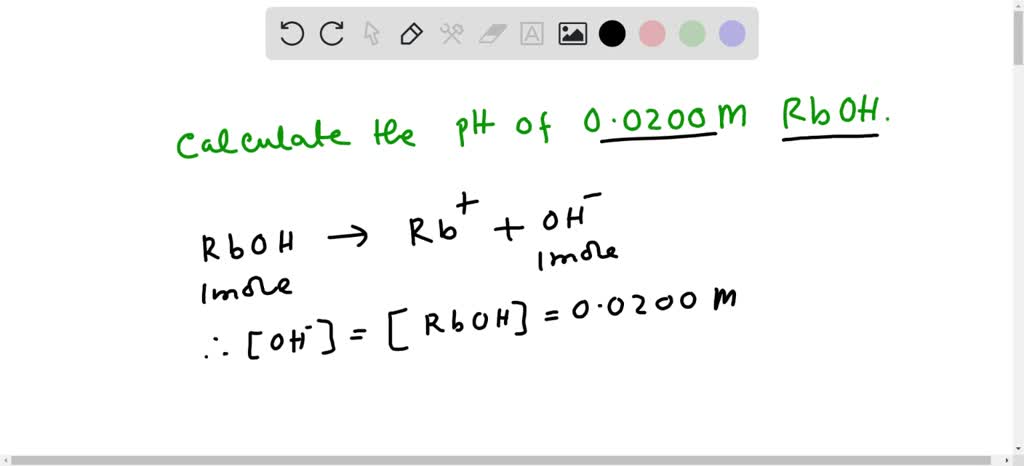 A
Calculate the pH of 0.0200 M RbOH.
RbOH → Rb⁺ + OH⁻
1 mole 1 mole
∴ [OH⁻] = [RbOH] = 0.0200 M